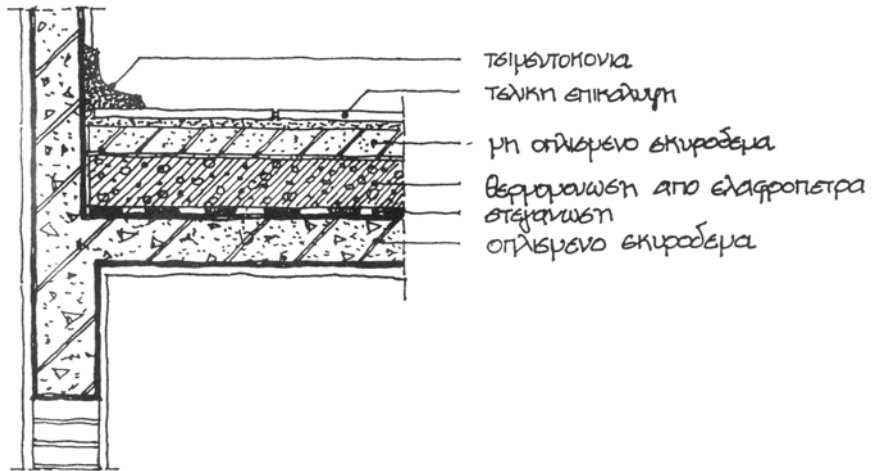 τσιμεντοκονια
τελικη επικαλυψη
μη οπλισμενο σκυροδεμα
θερμομονωση απο ελαφροπετρα
στεγανωση
οπλισμενο σκυροδεμα